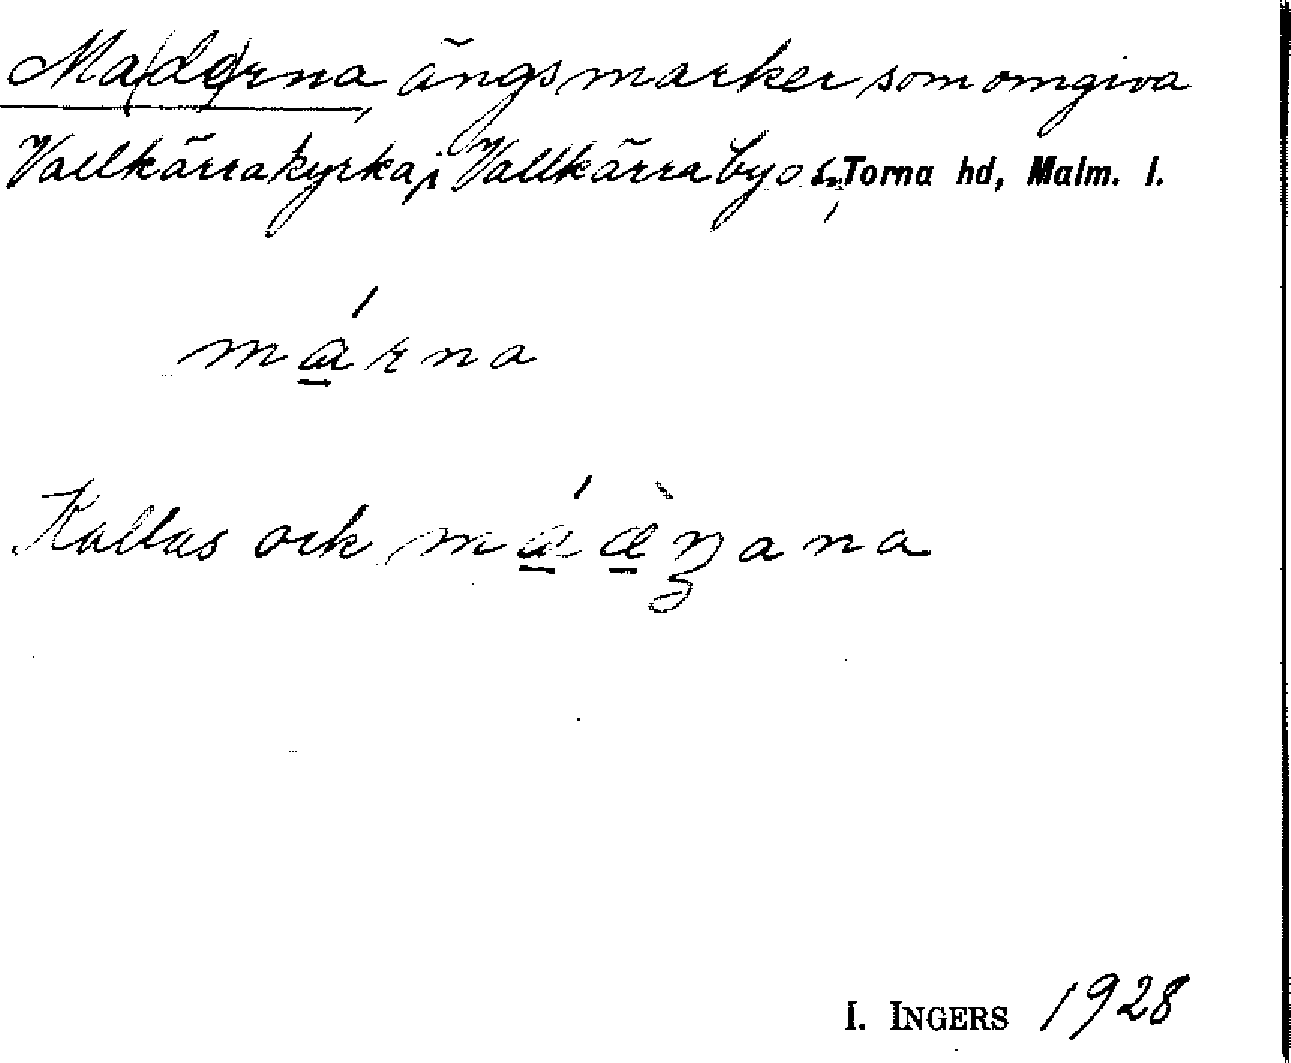 Ma(de)rna ängsmarker som omgiva
Vallkärra kyrka, i Vallkärra by o. s., Torna hd, Malm. l.
márna
Kallas ock
I. INGERS 1928